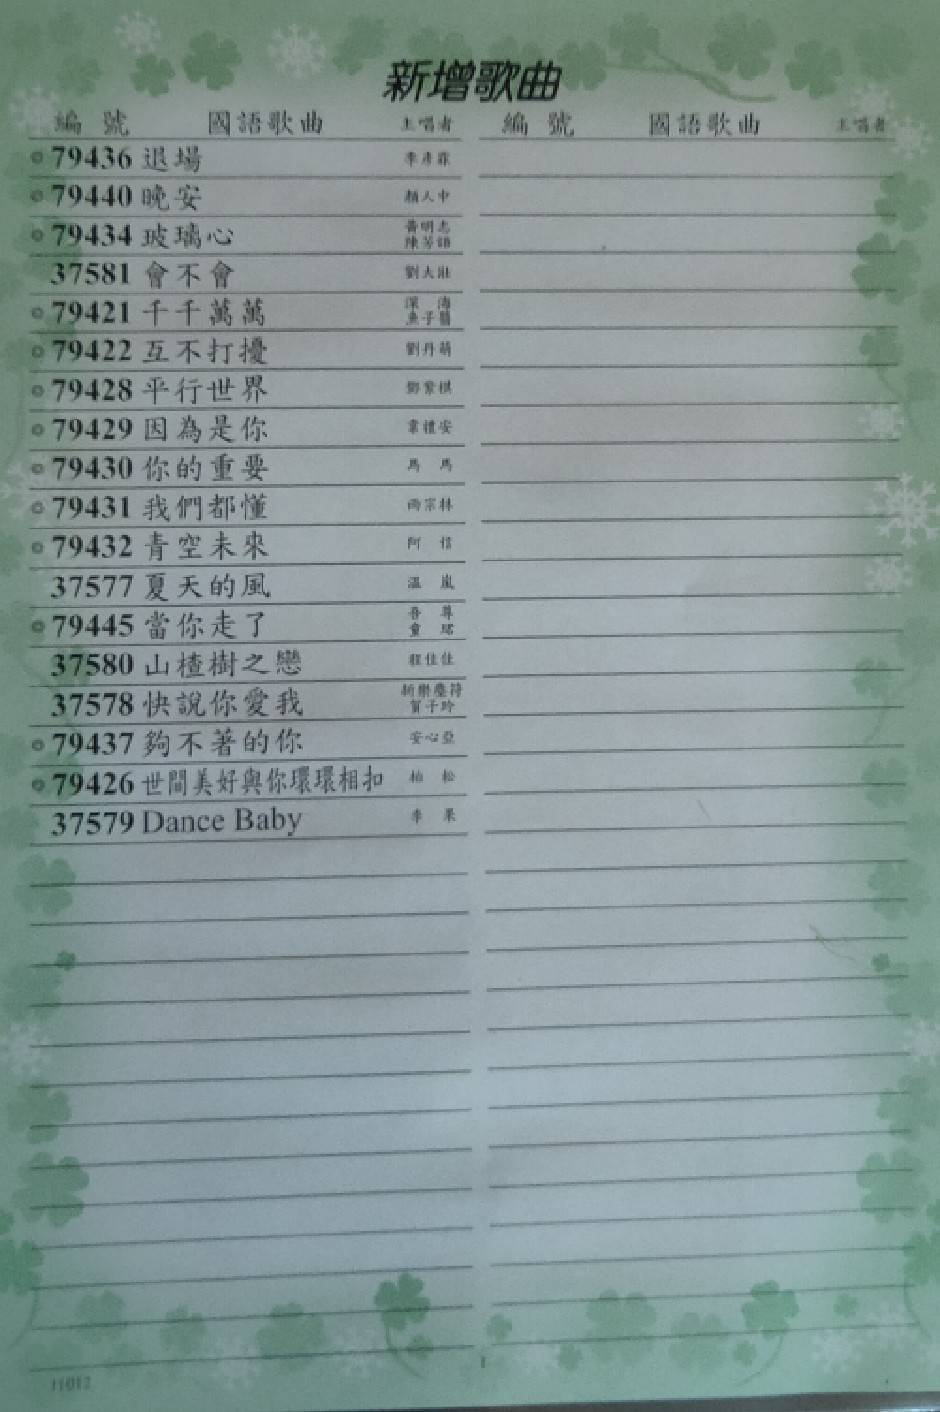 新增歌曲
編 號 國語歌曲 主唱者 編 號 國語歌曲 主唱者
79436 退場 李彥霏
79440 晚安 顏人中
79434 玻璃心 黃明志 陳芳語
37581 會不會 劉大壯
79421 千千萬萬 深海魚子醬
79422 互不打擾 劉丹萌
79428 平行世界 鄧紫棋
79429 因為是你 韋禮安
79430 你的重要 馬 馬
79431 我們都懂 雨宗林
79432 青空未來 阿 信
37577 夏天的風 溫 嵐
79445 當你走了 吾 尊 童 珺
37580 山楂樹之戀 程佳佳
37578 快說你愛我 新樂塵符 賀子玲
79437 夠不著的你 安心亞
79426 世間美好與你環環相扣 柏 松
37579 Dance Baby 李 果
11012